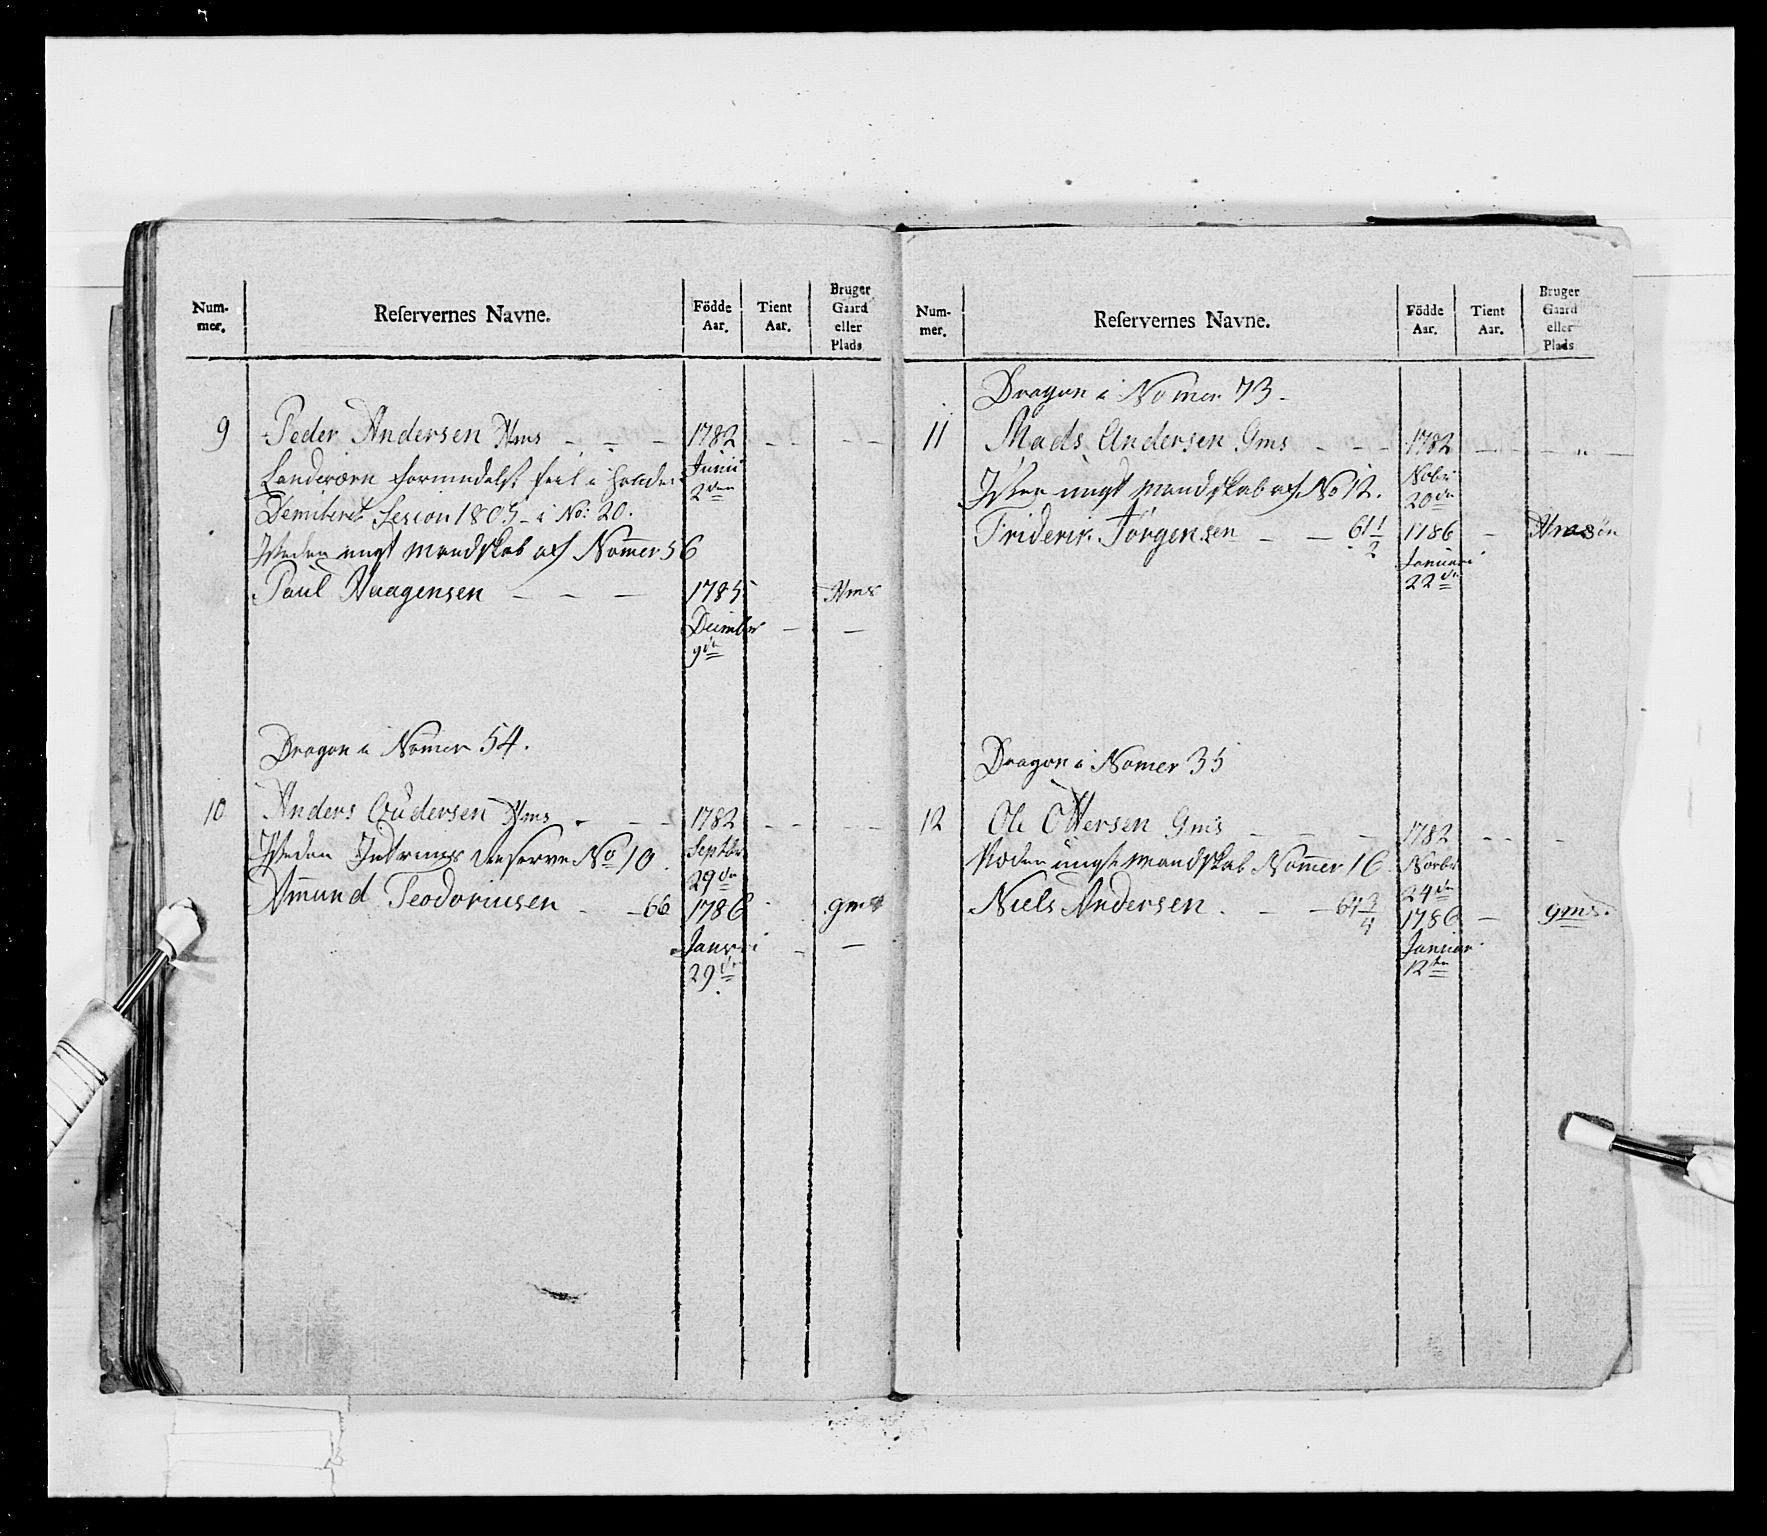 Num-
mer.
Reservernes Navne.
Födde
Aar.
Tient
Aar.
Bruger
Gaard
eller
Plads
9 Peder Andersen Hms — — — 1782 — — — —
Landværn formedelst feil i Juni
2den
Demiteret Sesion 1805 - i No: 20.
ungt mandskab af Nomer 56
Paul Haagensen — — — 1785 Hms
Decimbr — —
9de
Dragon i Nomer 54.
10 Anders Gudersen Hms - — — 1782 — — — —
Reserve No 10. Septbr
29de
Amund Teodoriusen - — 66 1786 - gms
Januari — —
29de
Num-
mer.
Reservernes Navne.
Födde
Aar.
Tient
Aar.
Bruger
Gaard
eller
Plads
Dragon i Nomer 73 -
11 Mads Andersen Gms — — — 1782 — — — „ —
ungt mandskab af No 12. Nobr
20de
Friderik Jörgensen — — 61 1/2 1786 -
Januari
22de
Dragon i Nomer 35
12 Ole Ottersen Gms — — — 1782 - - -
ungt mandskab Nomer 16. Novbr
24de
Niels Andersen . — — 1786 — gms.
Januar
12te